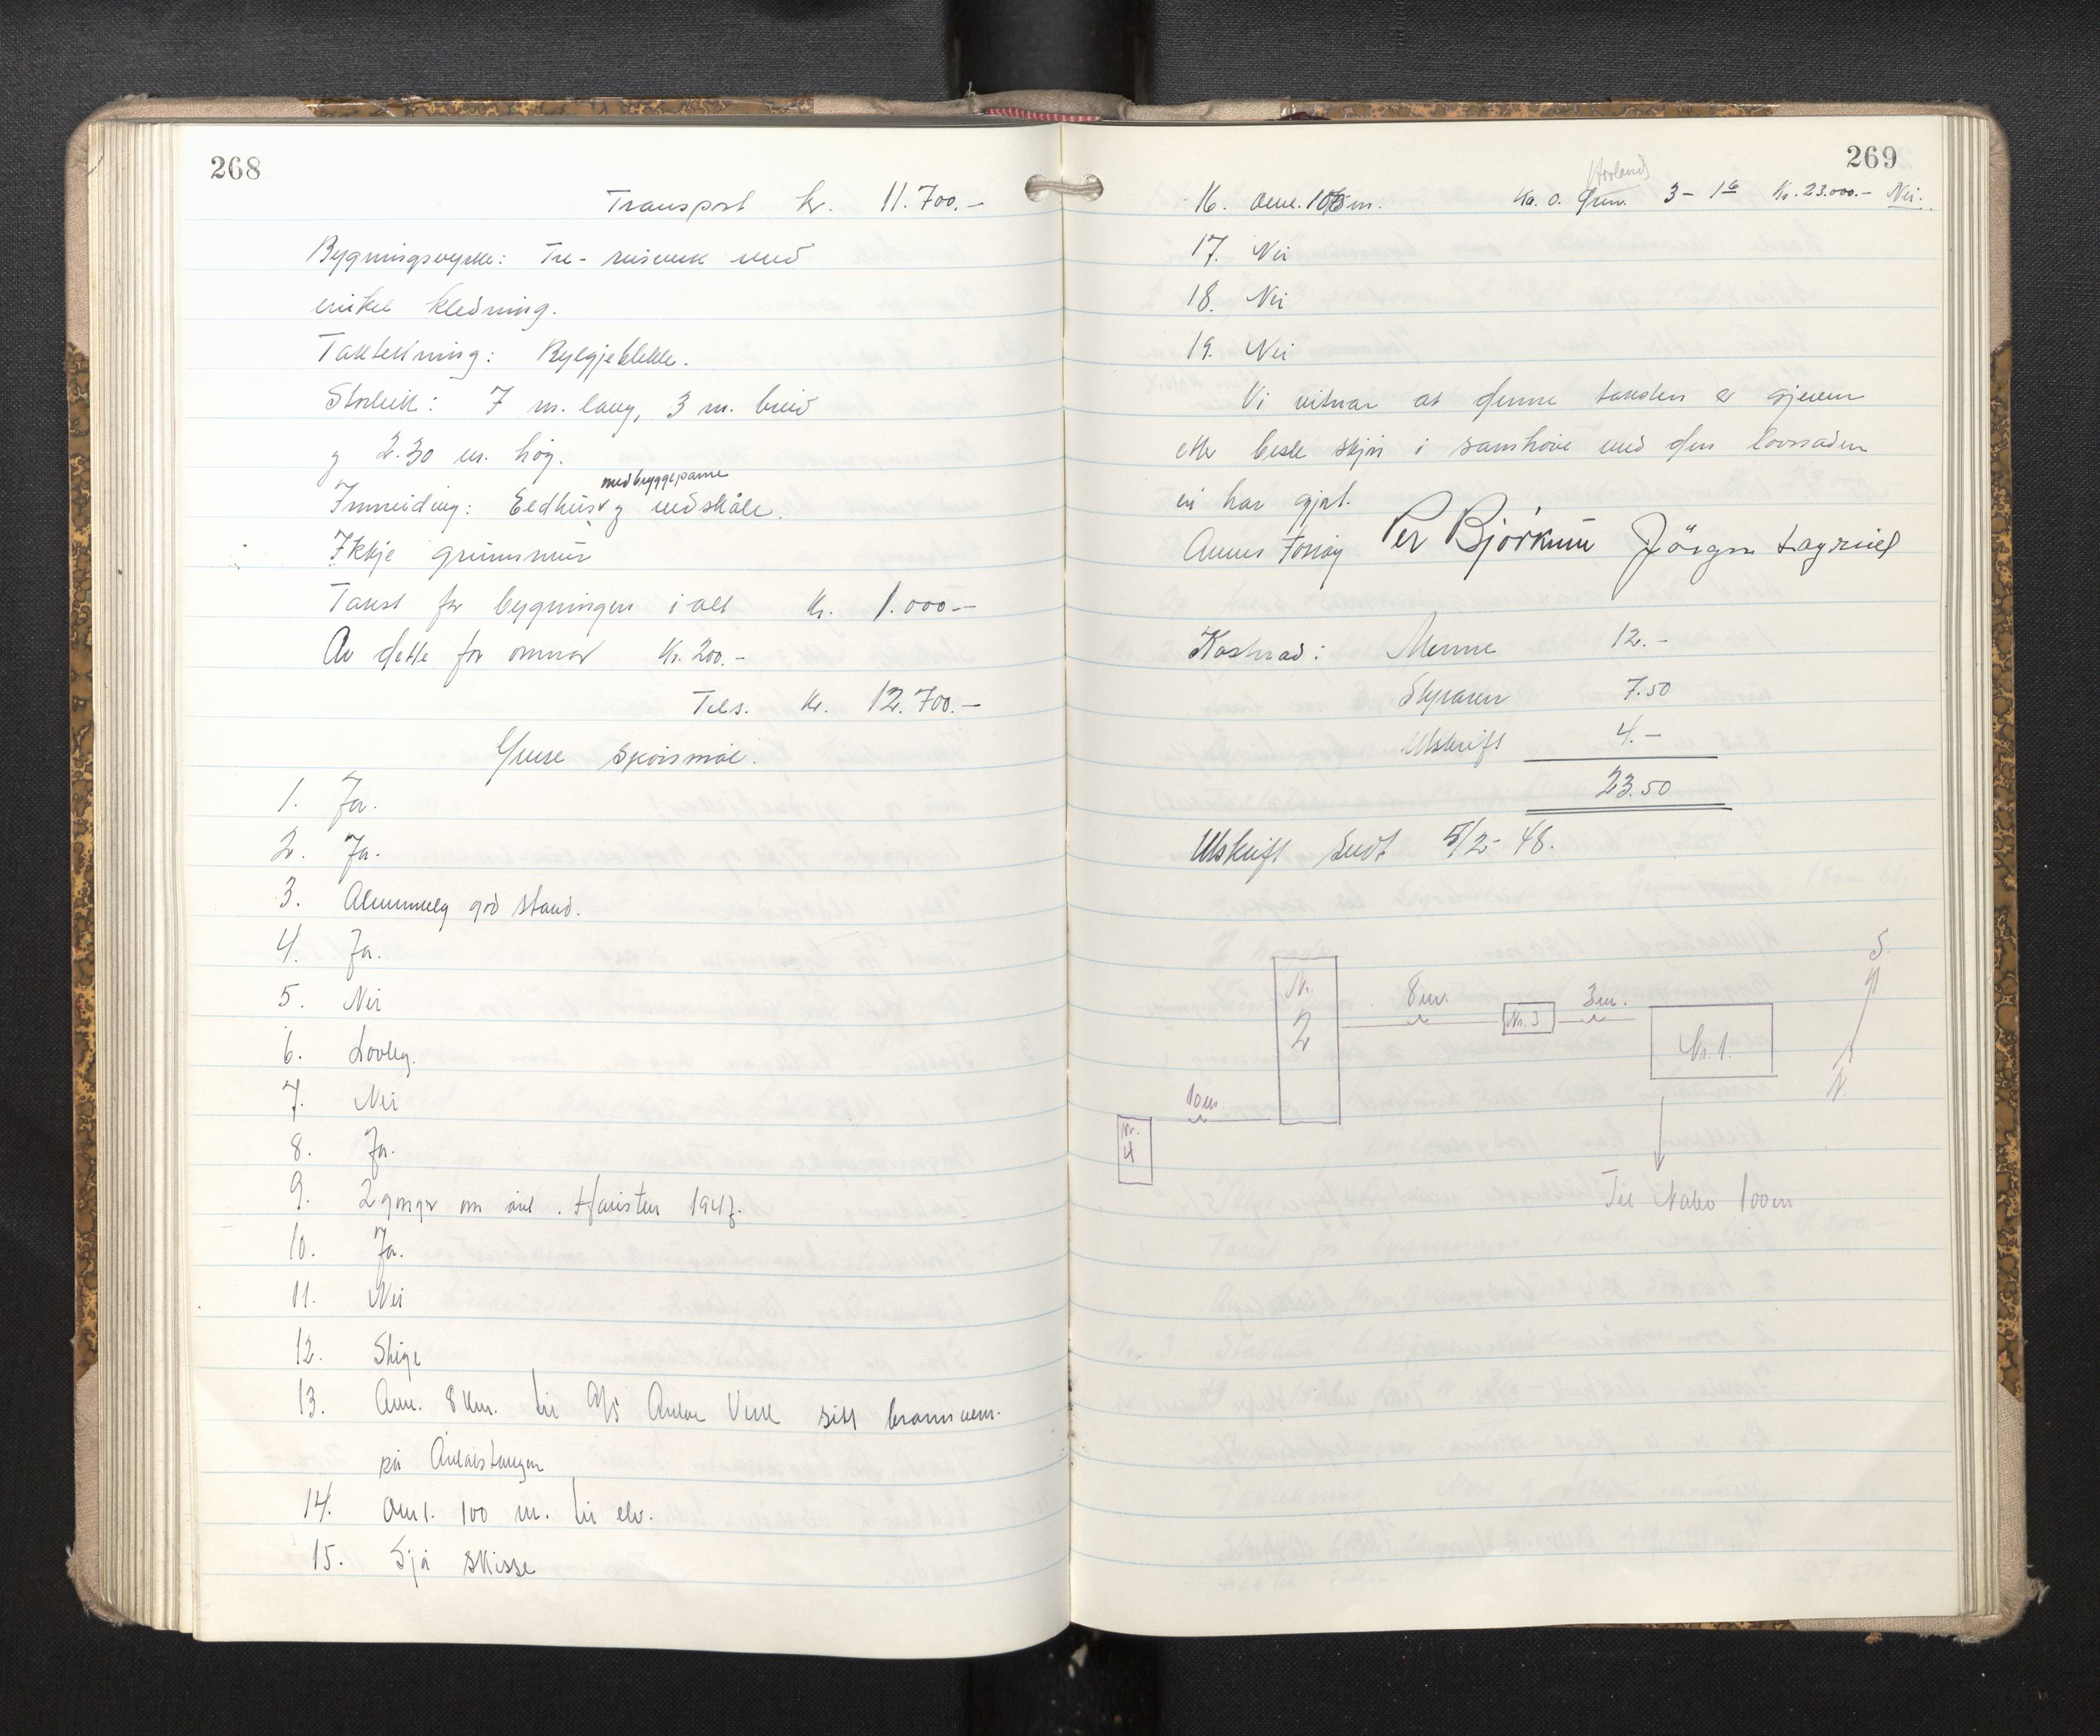 268
Transport kr. 11.700.-
Bygningsvyrke: Tre-reisverk med
enkel kledning.
Taktekning: Bylgjeblekk.
Storleik: 7 m. lang, 3 m. breid
og 2.30 m. høg.
med bryggepanne
Innreiding: Eldhus og vedskåle.
Ikkje grunnmur
Takst for bygningen i alt Kr. 1.000.-
Av dette for omnar Kr. 200.-
Tils. Kr. 12.700.-
Ymse spørsmål.
1. Ja.
2. Ja.
3. Alminneleg god stand.
4. Ja.
5. Nei
6. Lovleg.
7. Nei
8. Ja.
9. 2 gonger om året. Hausten 1947.
10. Ja.
11. Nei
12. Stige
13. Om. 8 km. til A/S Årdal Verk sitt brannvern.
på Årdalstangen
14. Oml. 100 m. til elv.
15. Sjå skisse
269
16. Oml. m. 3- 1 Kr. 23.000.- Nei.
17. Nei
18. Nei
19. Nei
Vi vitnar at denne taksten er gjeven
etter beste skjøn i samhøve med den lovnaden
vi har gjort.
Per Bjørkum Jörgen
Kostnad: Menne 12.-
Styraren 7.50
Utskrift 4.-
23.50
Utskrift sendt 5/2- 48.
S.
Nr. 2
8 m.
Nr. 3
3 m.
Nr. 1.
N.
10 m.
Nr. 4
Til Nabo 100 m